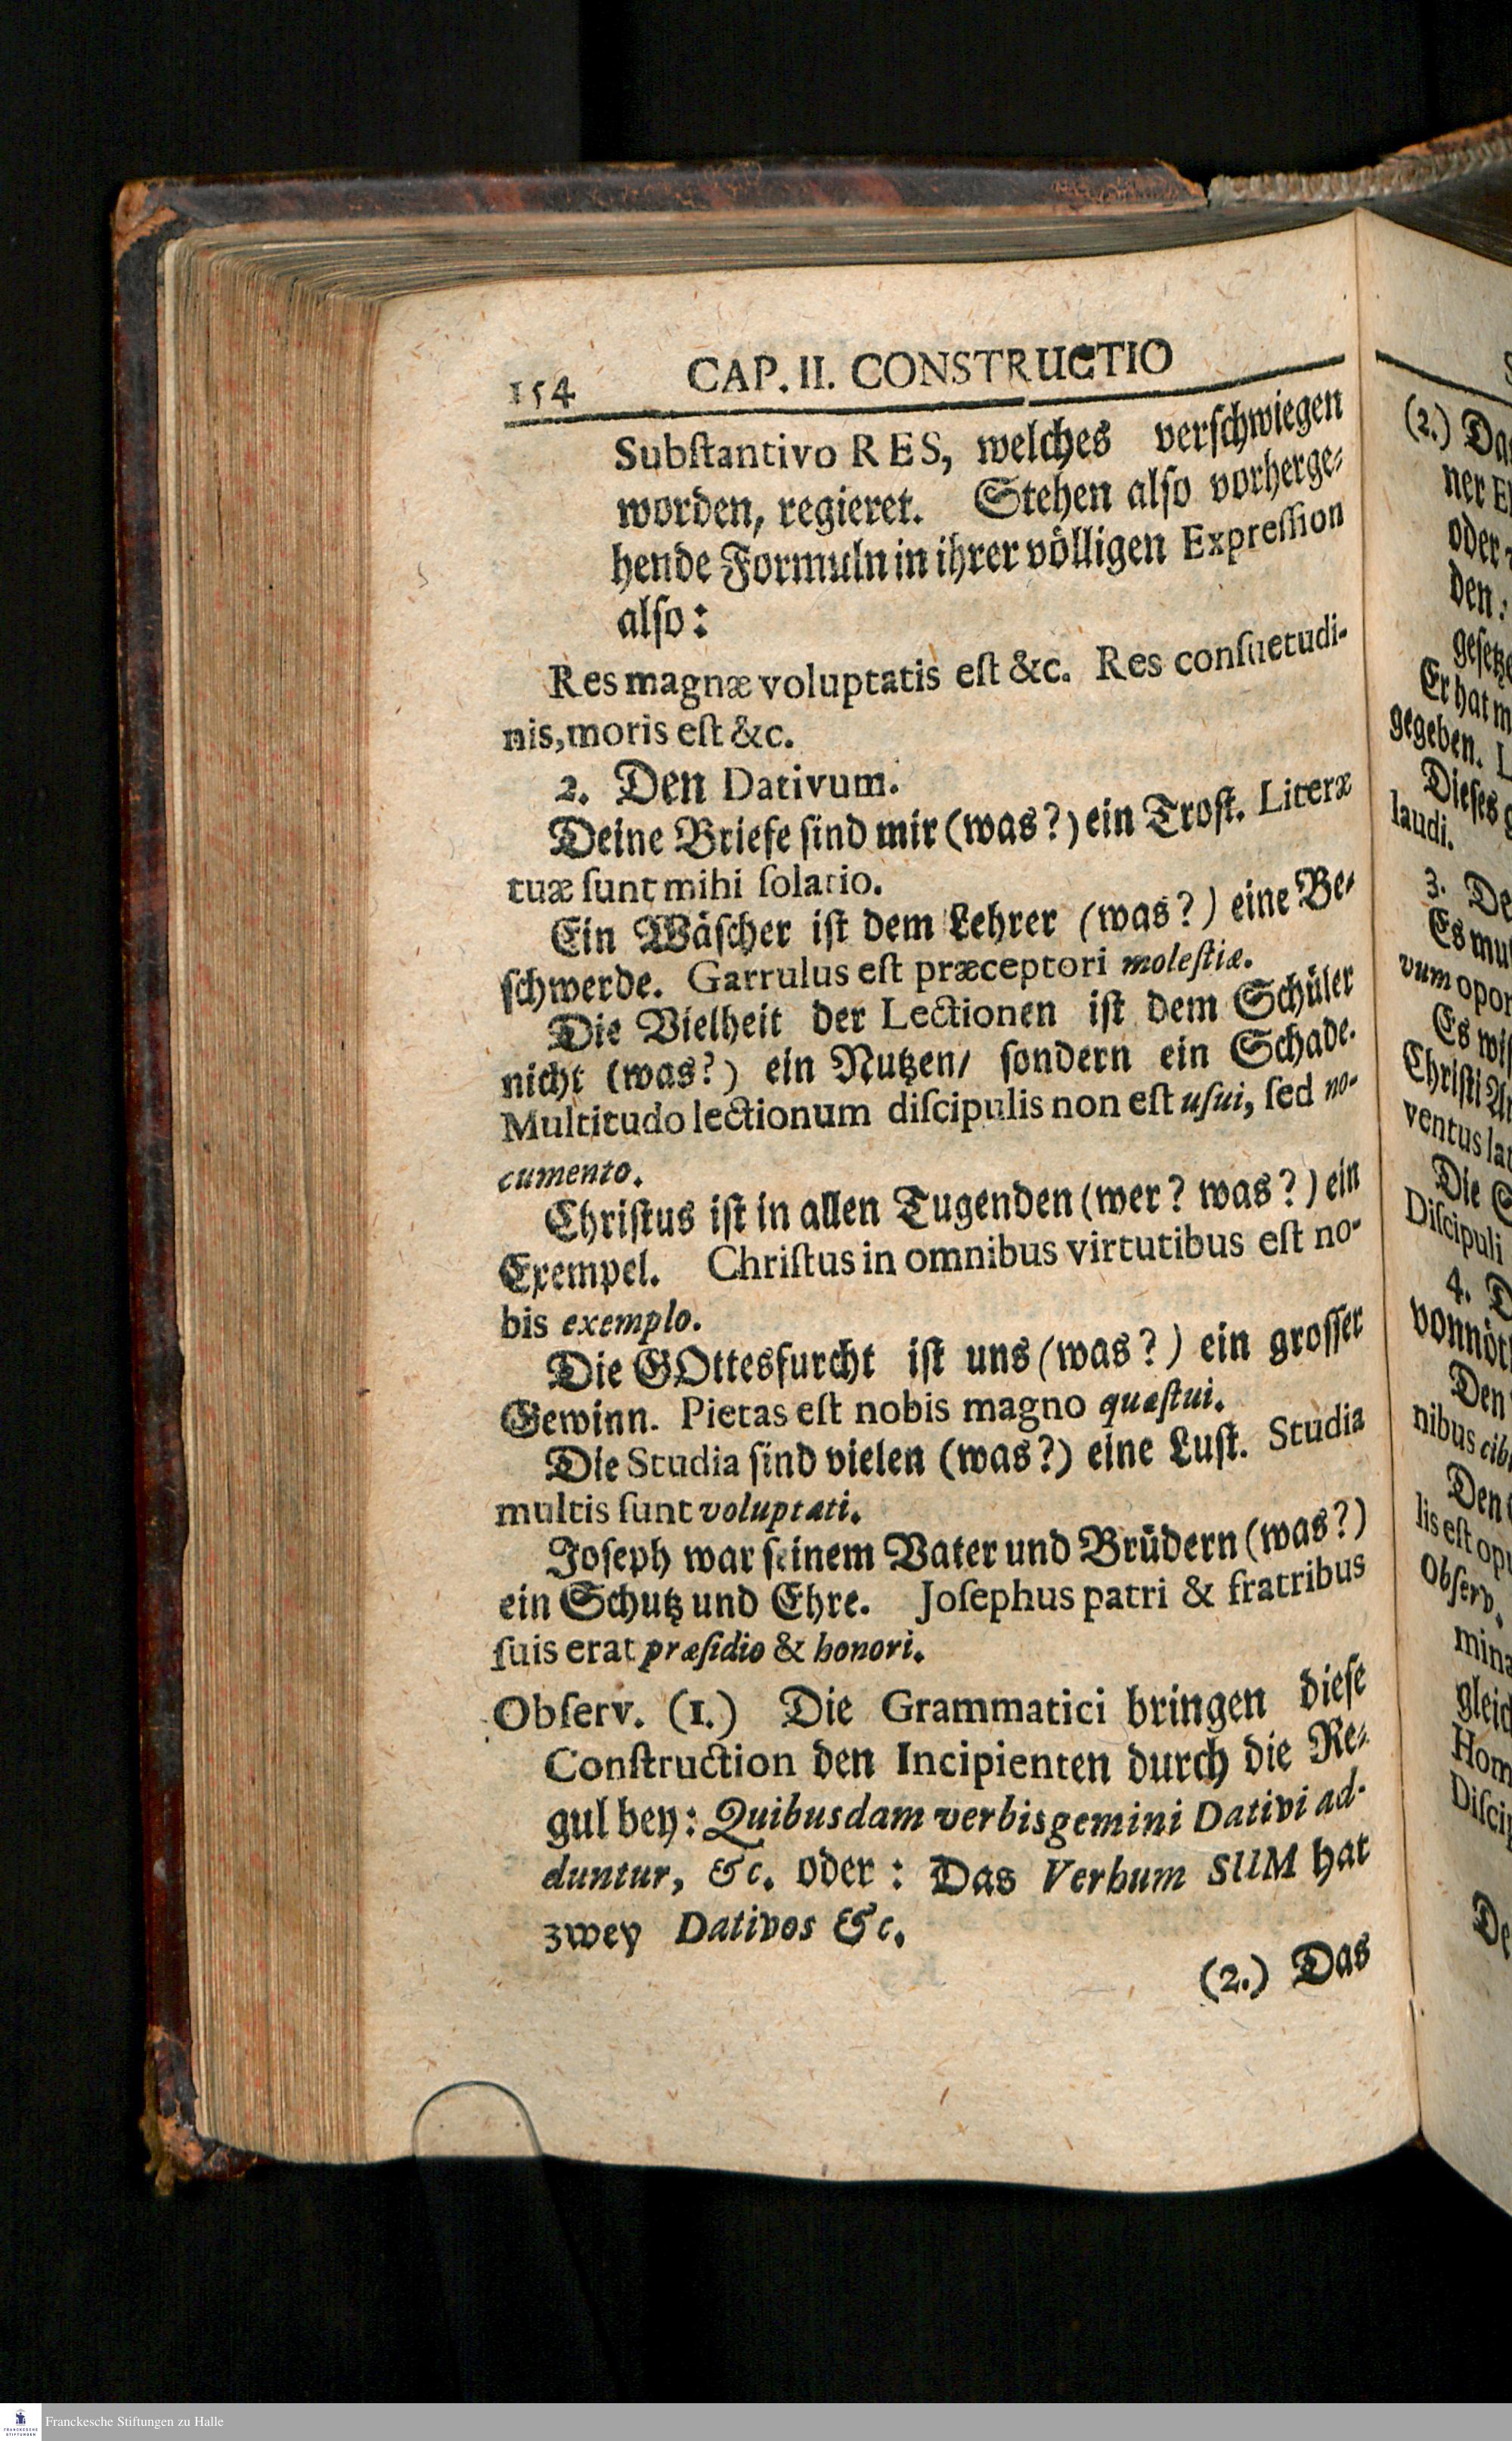 154 CAP. II. CONSTRUCTIO
Subſtantivo RES, welches verſchwiegen
worden, regieret. Stehen alſo vorherge⸗
hende Formuln in ihrer völligen Expreſſion
alſo:
Res magnæ voluptatis eſt &c. Res conſuetudi-
nis, moris eſt &c.
2. Den Dativum.
Deine Briefe ſind mir (was?) ein Troſt. Literæ
tuæ ſunt mihi ſolatio.
Ein Wäſcher iſt dem Lehrer (was?) eine Be⸗
ſchwerde. Garrulus eſt præceptori moleſtiæ.
Die Vielheit der Lectionen iſt dem Schüler
nicht (was?) ein Nutzen/ ſondern ein Schade.
Multitudo lectionum diſcipulis non eſt uſui, ſed no-
cumento.
Chriſtus iſt in allen Tugenden (wer? was?) ein
Exempel. Chriſtus in omnibus virtutibus eſt no-
bis exemplo.
Die GOttesfurcht iſt uns (was?) ein groſſer
Gewinn. Pietas eſt nobis magno quæſtui.
Die Studia ſind vielen (was?) eine Luſt. Studia
multis ſunt voluptati.
Joſeph war ſeinem Vater und Brüdern (was?)
ein Schutz und Ehre. Joſephus patri & fratribus
ſuis erat præſidio & honori.
Obſerv. (1.) Die Grammatici bringen dieſe
Conſtruction den Incipienten durch die Re⸗
gul bey: Quibusdam verbis gemini Dativi ad-
duntur, &c. oder: Das Verbum SUM hat
zwey Dativos &c.
(2.) Das
(2.) Da
ner
oder
den:
geſetze
Er hat m
gegeben. L
Dieſes g
laudi.
3. De
Es mu
vum opor
Es wiſ
Chriſti A
ventus la
Die
Diſcipuli
4. D
vonnöt
Den
nibus cib
Den
lis eſt op
Obſerv.
mina
gleic
Hom
Diſcip
De
Franckesche Stiftungen zu Halle